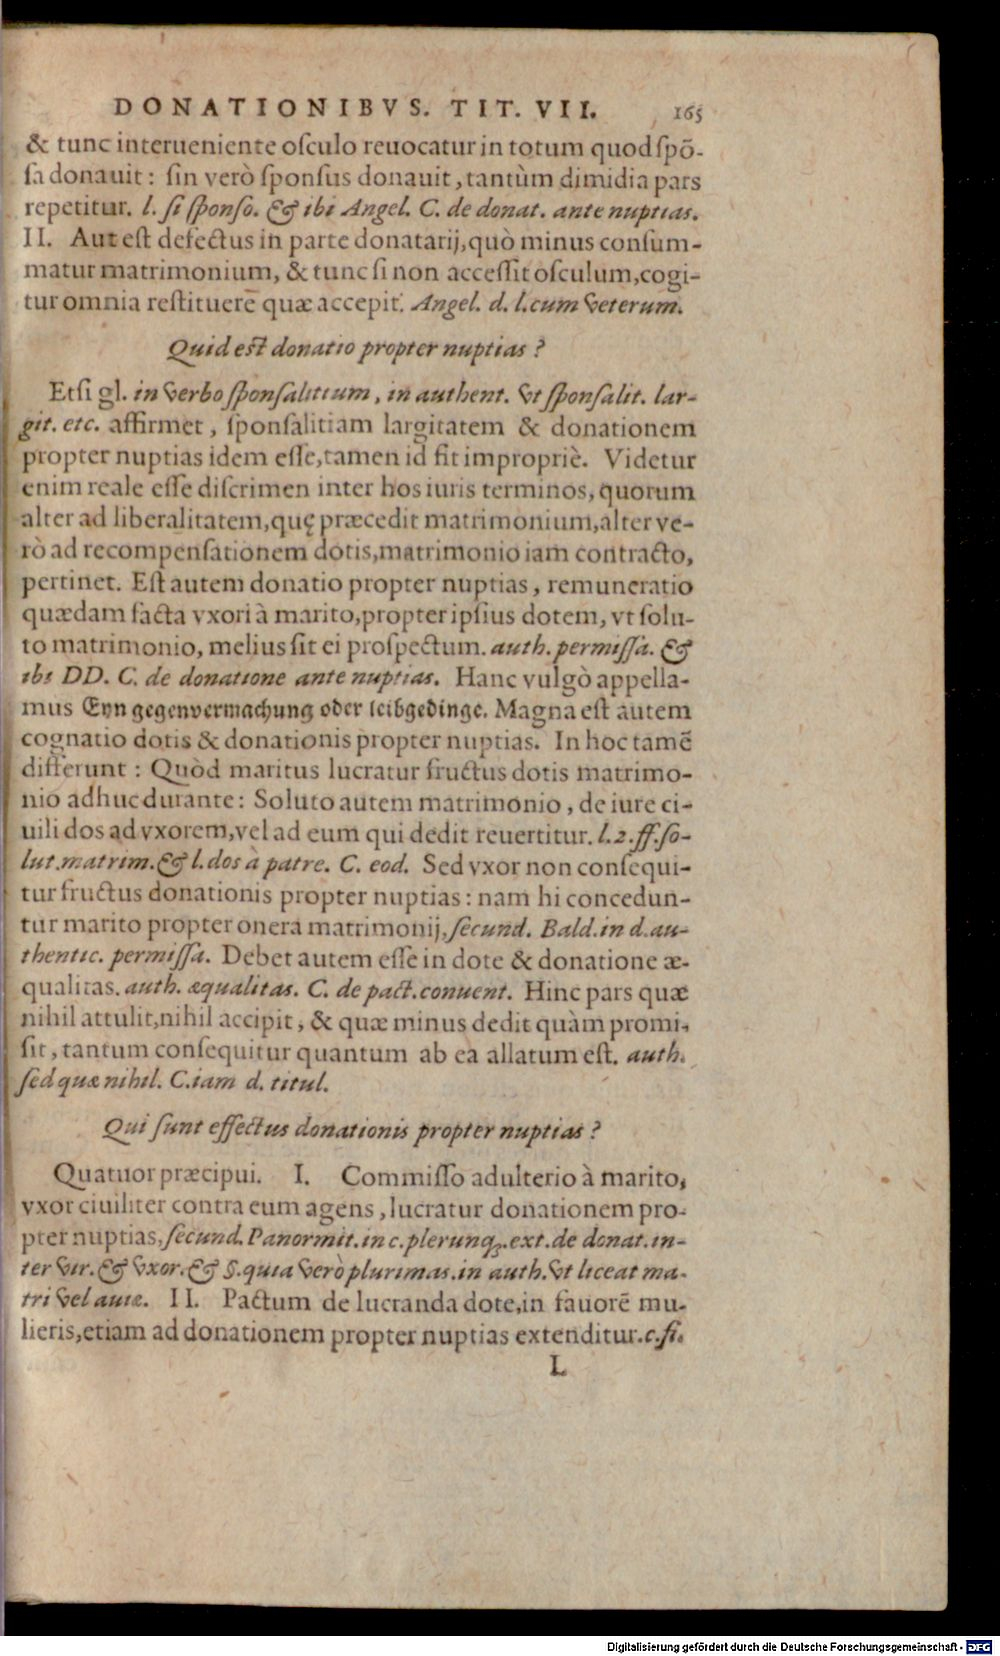 DONATIONIBVS. TIT. VII. 165
& tunc interueniente osculo reuocatur in totum quod spõ-
sa donauit: sin verò sponsus donauit, tantùm dimidia pars
repetitur. l. si sponso. & ibi Angel. C. de donat. ante nuptias.
II. Aut est defectus in parte donatarij, quò minus consum-
matur matrimonium, & tunc si non accessit osculum, cogi-
tur omnia restituerẽ quæ accepit. Angel. d. l. cum veterum.
Quid est donatio propter nuptias?
Etsi gl. in verbo sponsalitium, in authent. vt sponsalit. lar-
git. etc. affirmet, sponsalitiam largitatem & donationem
propter nuptias idem esse, tamen id fit impropriè. Videtur
enim reale esse discrimen inter hos iuris terminos, quorum
alter ad liberalitatem, quę præcedit matrimonium, alter ve-
rò ad recompensationem dotis, matrimonio iam contracto,
pertinet. Est autem donatio propter nuptias, remuneratio
quædam facta vxori à marito, propter ipsius dotem, vt solu-
to matrimonio, melius sit ei prospectum. auth. permissa. &
ibi DD. C. de donatione ante nuptias. Hanc vulgò appella-
mus Eyn gegenvermachung oder leibgedinge. Magna est autem
cognatio dotis & donationis propter nuptias. In hoc tamẽ
differunt: Quòd maritus lucratur fructus dotis matrimo-
nio adhuc durante: Soluto autem matrimonio, de iure ci-
uili dos ad vxorem, vel ad eum qui dedit reuertitur. l. 2. ff. so-
lut. matrim. & l. dos à patre. C. eod. Sed vxor non consequi-
tur fructus donationis propter nuptias: nam hi concedun-
tur marito propter onera matrimonij, secund. Bald. in d. au-
thentic. permissa. Debet autem esse in dote & donatione æ-
qualitas. auth. æqualitas. C. de pact. conuent. Hinc pars quæ
nihil attulit, nihil accipit, & quæ minus dedit quàm promi-
sit, tantum consequitur quantum ab ea allatum est. auth.
sed quæ nihil. C. iam d. titul.
Qui sunt effectus donationis propter nuptias?
Quatuor præcipui. I. Commisso adulterio à marito,
vxor ciuiliter contra eum agens, lucratur donationem pro-
pter nuptias, secund. Panormit. in c. plerunq; ext. de donat. in-
ter vir. & vxor. & §. quia verò plurimas. in auth. vt liceat ma-
tri vel auiæ. II. Pactum de lucranda dote, in fauorẽ mu-
lieris, etiam ad donationem propter nuptias extenditur. c. fi.
L
Digitalisierung gefördert durch die Deutsche Forschungsgemeinschaft - DFG